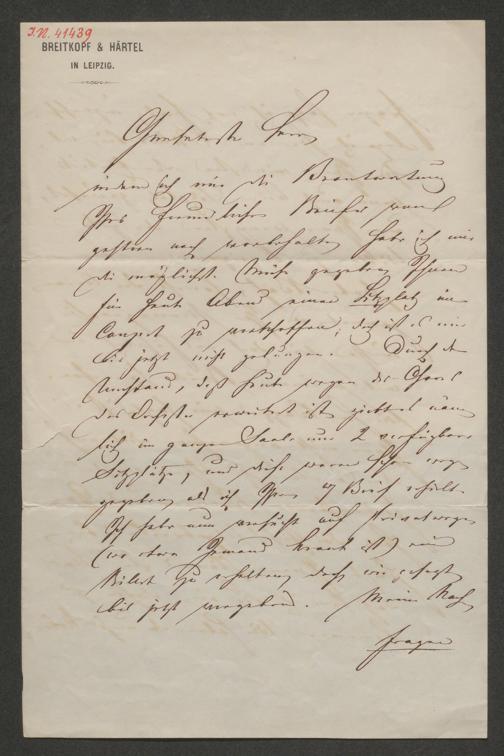 I.N. 41439
BREITKOPF & HÄRTEL
IN LEIPZIG.
Geehrtester Herr,
indem ich mir die Beantwortung
Ihres freundlichen Briefes vom
gestern noch vorbehalte, habe ich mir
die möglichste Mühe gegeben Ihnen
für heute Abend einen Sitzplatz im
Concert zu verschaffen, doch ist es mir
bis jetzt nicht gelungen. Durch den
Umstand, daß heute wegen des Chores
das Orchester erweitert ist, giebt es näm
lich im ganzen Saale nur 2 verfügbare
Sitzplätze, und diese waren schon weg
gegeben als ich Ihren Brief erhielt.
Ich habe nun versucht auf Privatwegen
(wo etwa Jemand krank ist) ein
Billet zu erhalten, doch wie gesagt
bis jetzt vergebens. Meine Nach
fragen